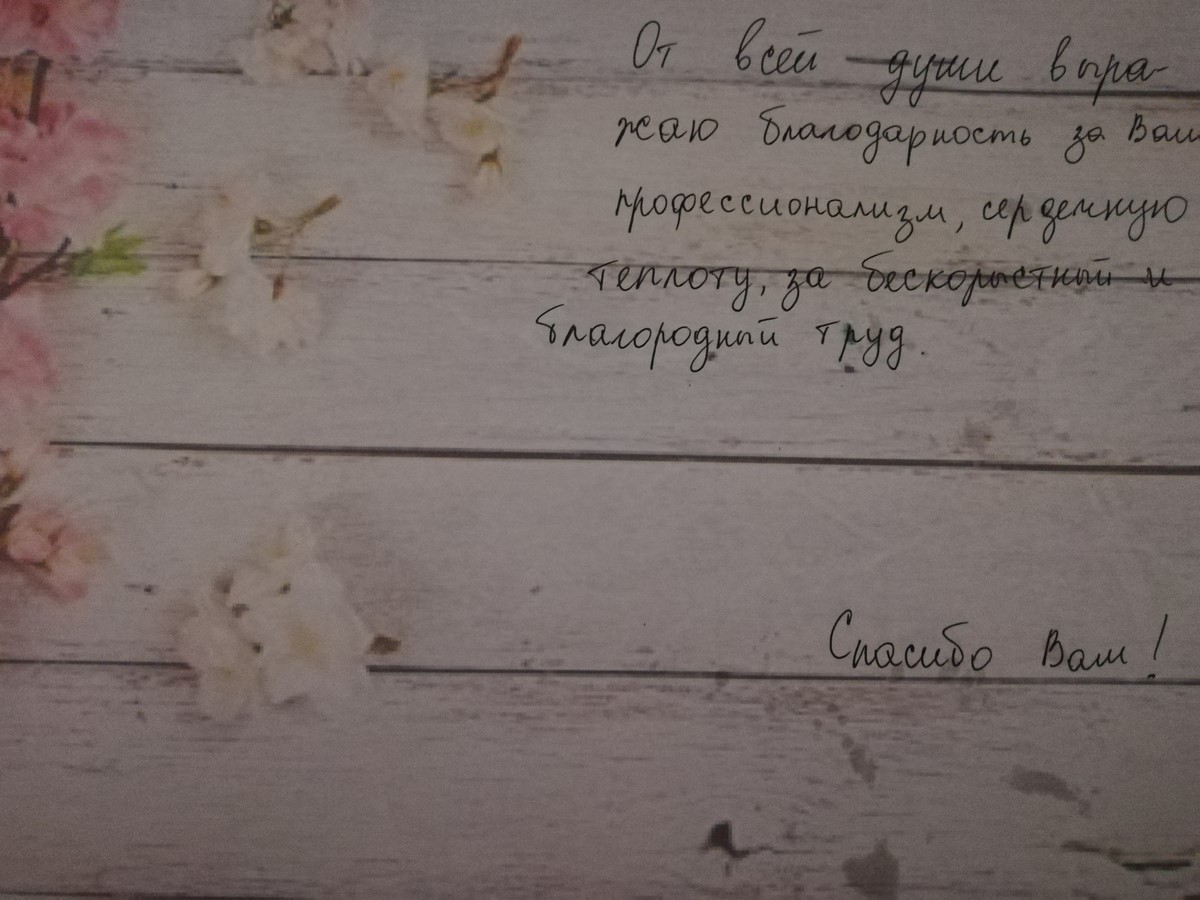 От всей души выра-
жаю благодарность за Ваш
профессионализм, сердечную
теплоту, за бескорыстный и
благородный труд.
Спасибо Вам!